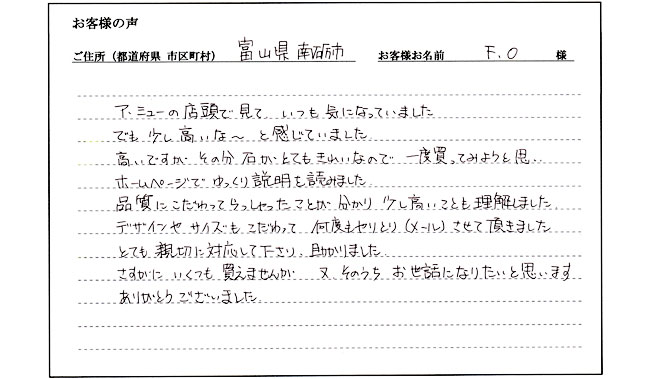 お客様の声
ご住所（都道府県 市区町村） 富山県 南砺市 お客様お名前 F.O 様
ア・ミューの店頭で見て いつも気になっていました
でも 少し高いな〜 と感じていました
高いですが その分 石がとてもきれいなので 一度買ってみようと思い
ホームページで ゆっくり説明を読みました
品質にこだわってらっしゃったことが分かり 少し高いことも理解しました
デザインや サイズもこだわって 何度もやりとり(メール)させて頂きました
とても 親切に対応して下さり、助かりました
さすがに いくつも 買えませんが 又、そのうち お世話になりたいと思います
ありがとうございました